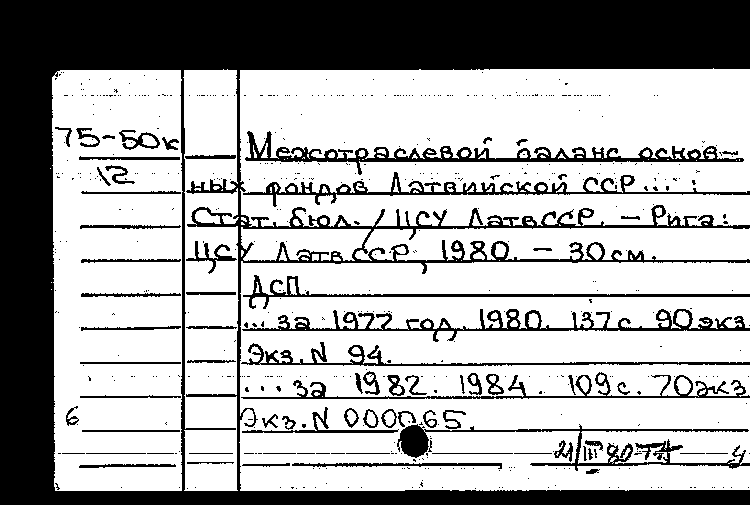 75-50к Межотраслевой баланс основ-
12 ных фондов Латвийской ССР... :
Стат. бюл. / ЦСУ ЛатвССР. - Рига:
ЦСУ Латв.ССР, 1980. - 30 см.
ДСП.
... за 1977 год. 1980. 137 с. 90 экз
Экз. N 94.
... за 1982. 1984. 109 с. 70 экз
6 Экз. N 000065.
21/III 80